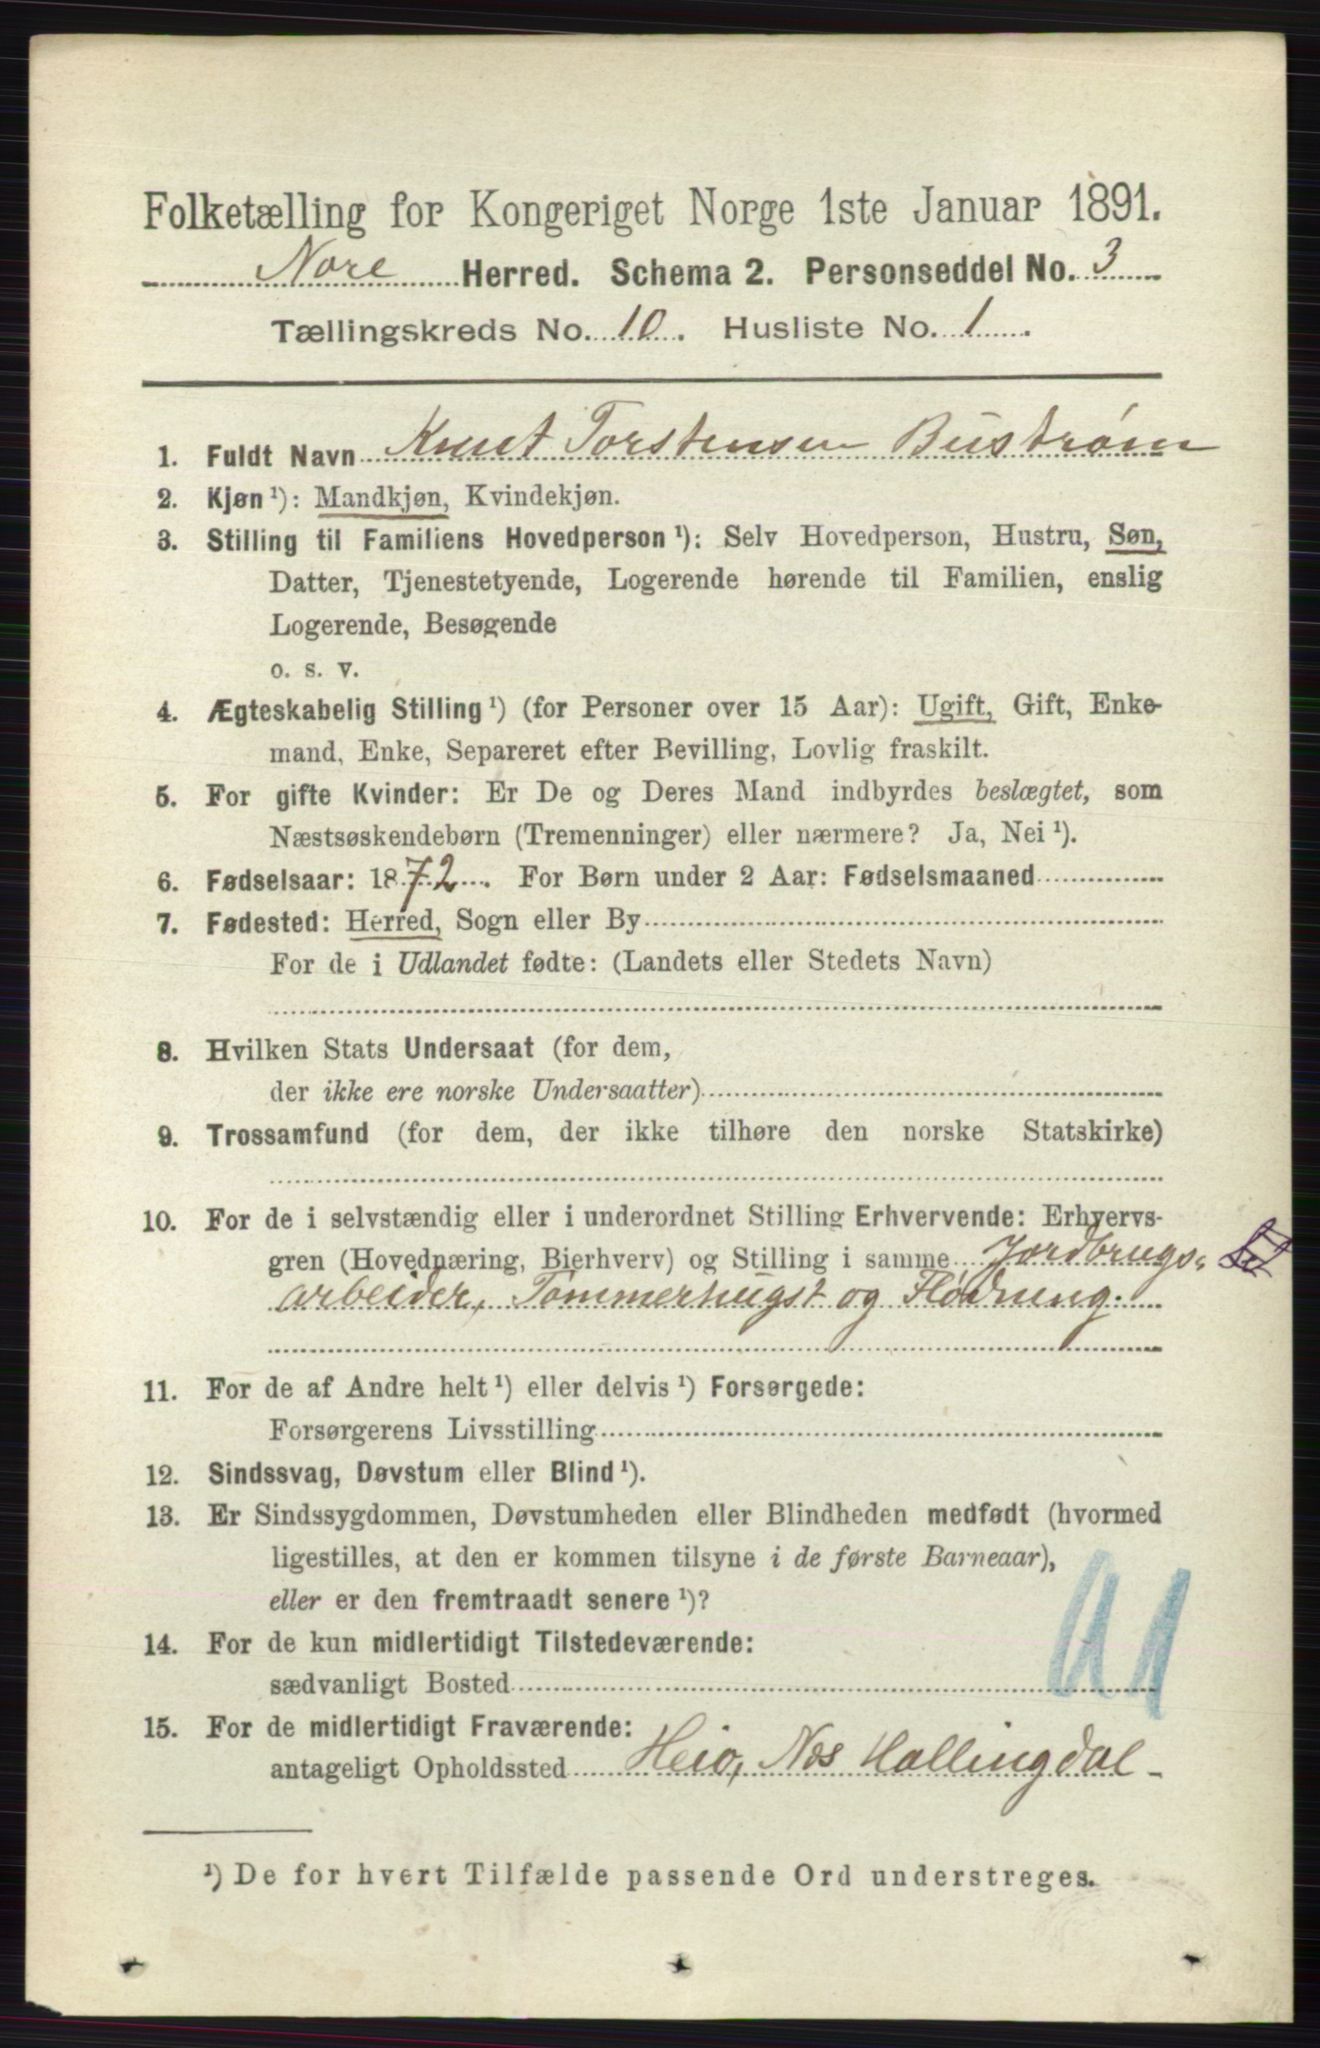 Folketælling for Kongeriget Norge 1ste Januar 1891.
Nore Herred. Schema 2. Personseddel No. 3
Tællingskreds No. 10. Husliste No. 1
1. Fuldt Navn Knut Torstensen Bustrøm
2. Kjøn ¹): Mandkjøn, Kvindekjøn.
3. Stilling til Familiens Hovedperson ¹): Selv Hovedperson, Hustru, Søn,
Datter, Tjenestetyende, Logerende hørende til Familien, enslig
Logerende, Besøgende
o. s. v.
4. Ægteskabelig Stilling ¹) (for Personer over 15 Aar): Ugift, Gift, Enke-
mand, Enke, Separeret efter Bevilling, Lovlig fraskilt.
5. For gifte Kvinder: Er De og Deres Mand indbyrdes beslægtet, som
Næstsøskendebørn (Tremenninger) eller nærmere? Ja, Nei ¹).
6. Fødselsaar: 1872. For Børn under 2 Aar: Fødselsmaaned
7. Fødested: Herred, Sogn eller By
For de i Udlandet fødte: (Landets eller Stedets Navn)
8. Hvilken Stats Undersaat (for dem,
der ikke ere norske Undersaatter)
9. Trossamfund (for dem, der ikke tilhøre den norske Statskirke)
10. For de i selvstændig eller i underordnet Stilling Erhvervende: Erhvervs-
gren (Hovednæring, Bierhverv) og Stilling i samme Jordbrugs-
arbeider, Tømmerhugst og Flødning.
11. For de af Andre helt ¹) eller delvis ¹) Forsørgede:
Forsørgerens Livsstilling
12. Sindssvag, Døvstum eller Blind ¹).
13. Er Sindssygdommen, Døvstumheden eller Blindheden medfødt (hvormed
ligestilles, at den er kommen tilsyne i de første Barneaar),
eller er den fremtraadt senere ¹)?
14. For de kun midlertidigt Tilstedeværende:
sædvanligt Bosted
15. For de midlertidigt Fraværende:
antageligt Opholdssted Heio, Nes Hallingdal
¹) De for hvert Tilfælde passende Ord understreges.